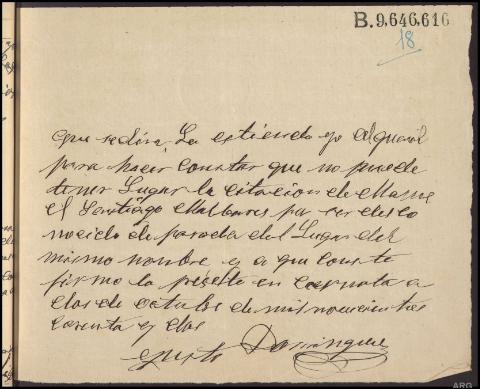 B.9,646,616
18
La estiendo yo Alguacil
para hacer constar que no puede
tener Lugar la citacion de Manue
l Santiago Malbares por ser desco
nocido de parada del Lugar del
mismo nombre y a que conste
firmo la presente en a
dos de octubre de mil novecientos
y dos
Justo Domínguez
ARG